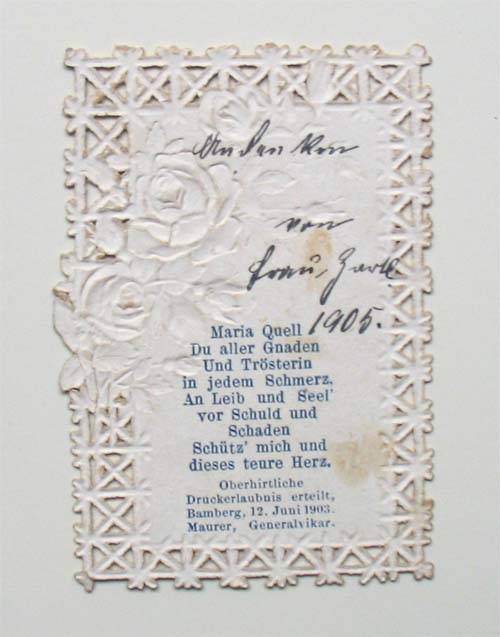 Andenken
von
Frau
1905.
Maria Quell
Du aller Gnaden
Und Trösterin
in jedem Schmerz,
An Leib und Seel'
vor Schuld und
Schaden
Schütz' mich und
dieses teure Herz.
Oberhirtliche
Druckerlaubnis erteilt,
Bamberg, 12. Juni 1903.
Maurer, Generalvikar.